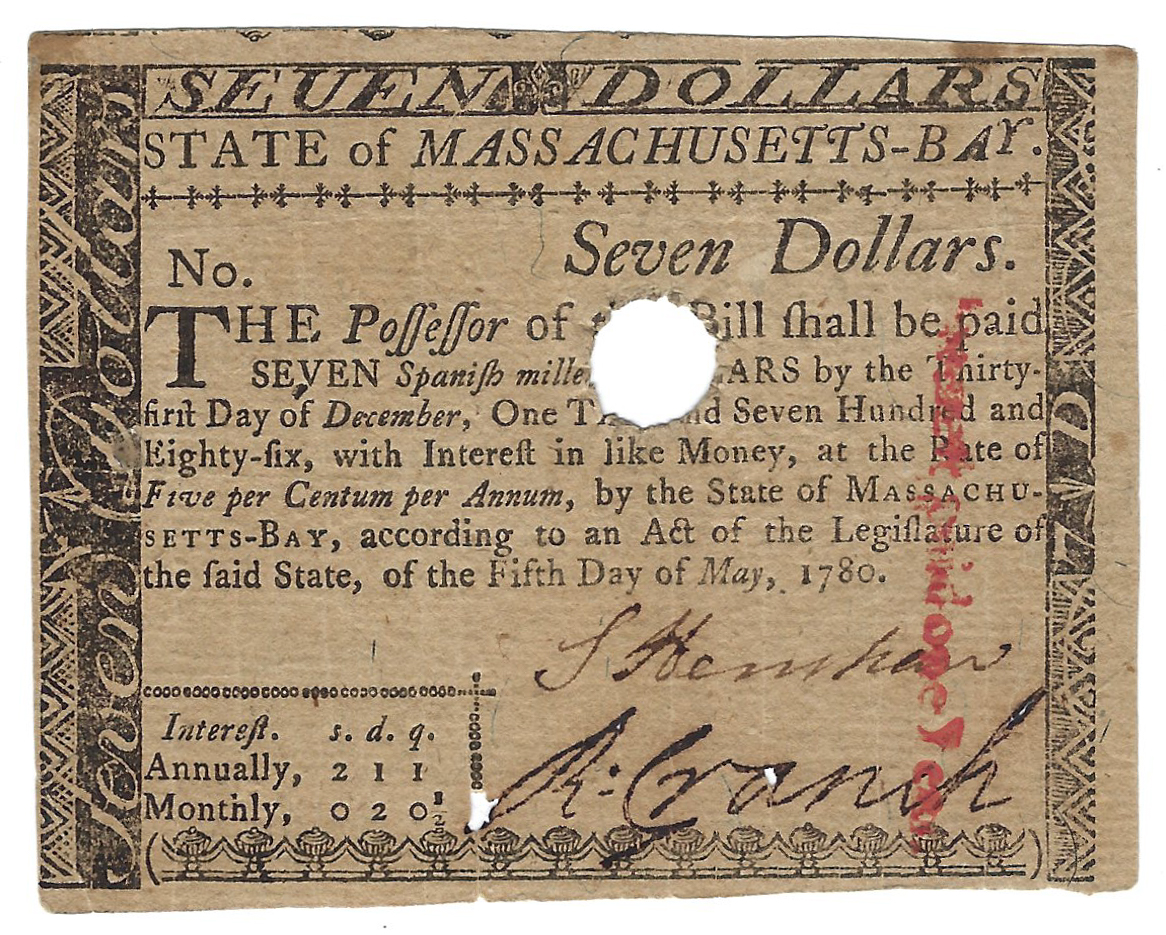 SEVEN DOLLARS
STATE of MASSACHUSETTS-BAY.
Seven Dollars.
No.
THE Poſſeſſor of Bill ſhall be paid
SEVEN Spaniſh mille ARS by the Thirty-
firſt Day of December, One Th nd Seven Hundred and
Eighty-ſix, with Intereſt in like Money, at the Rate of
Five per Centum per Annum, by the State of MASSACHU-
SETTS-BAY, according to an Act of the Legiſlature of
the ſaid State, of the Fifth Day of May, 1780.
S Henshaw
R: Cranch
Intereſt. s. d. q.
Annually, 2 1 1
Monthly, 0 2 0½
Seven Dollars